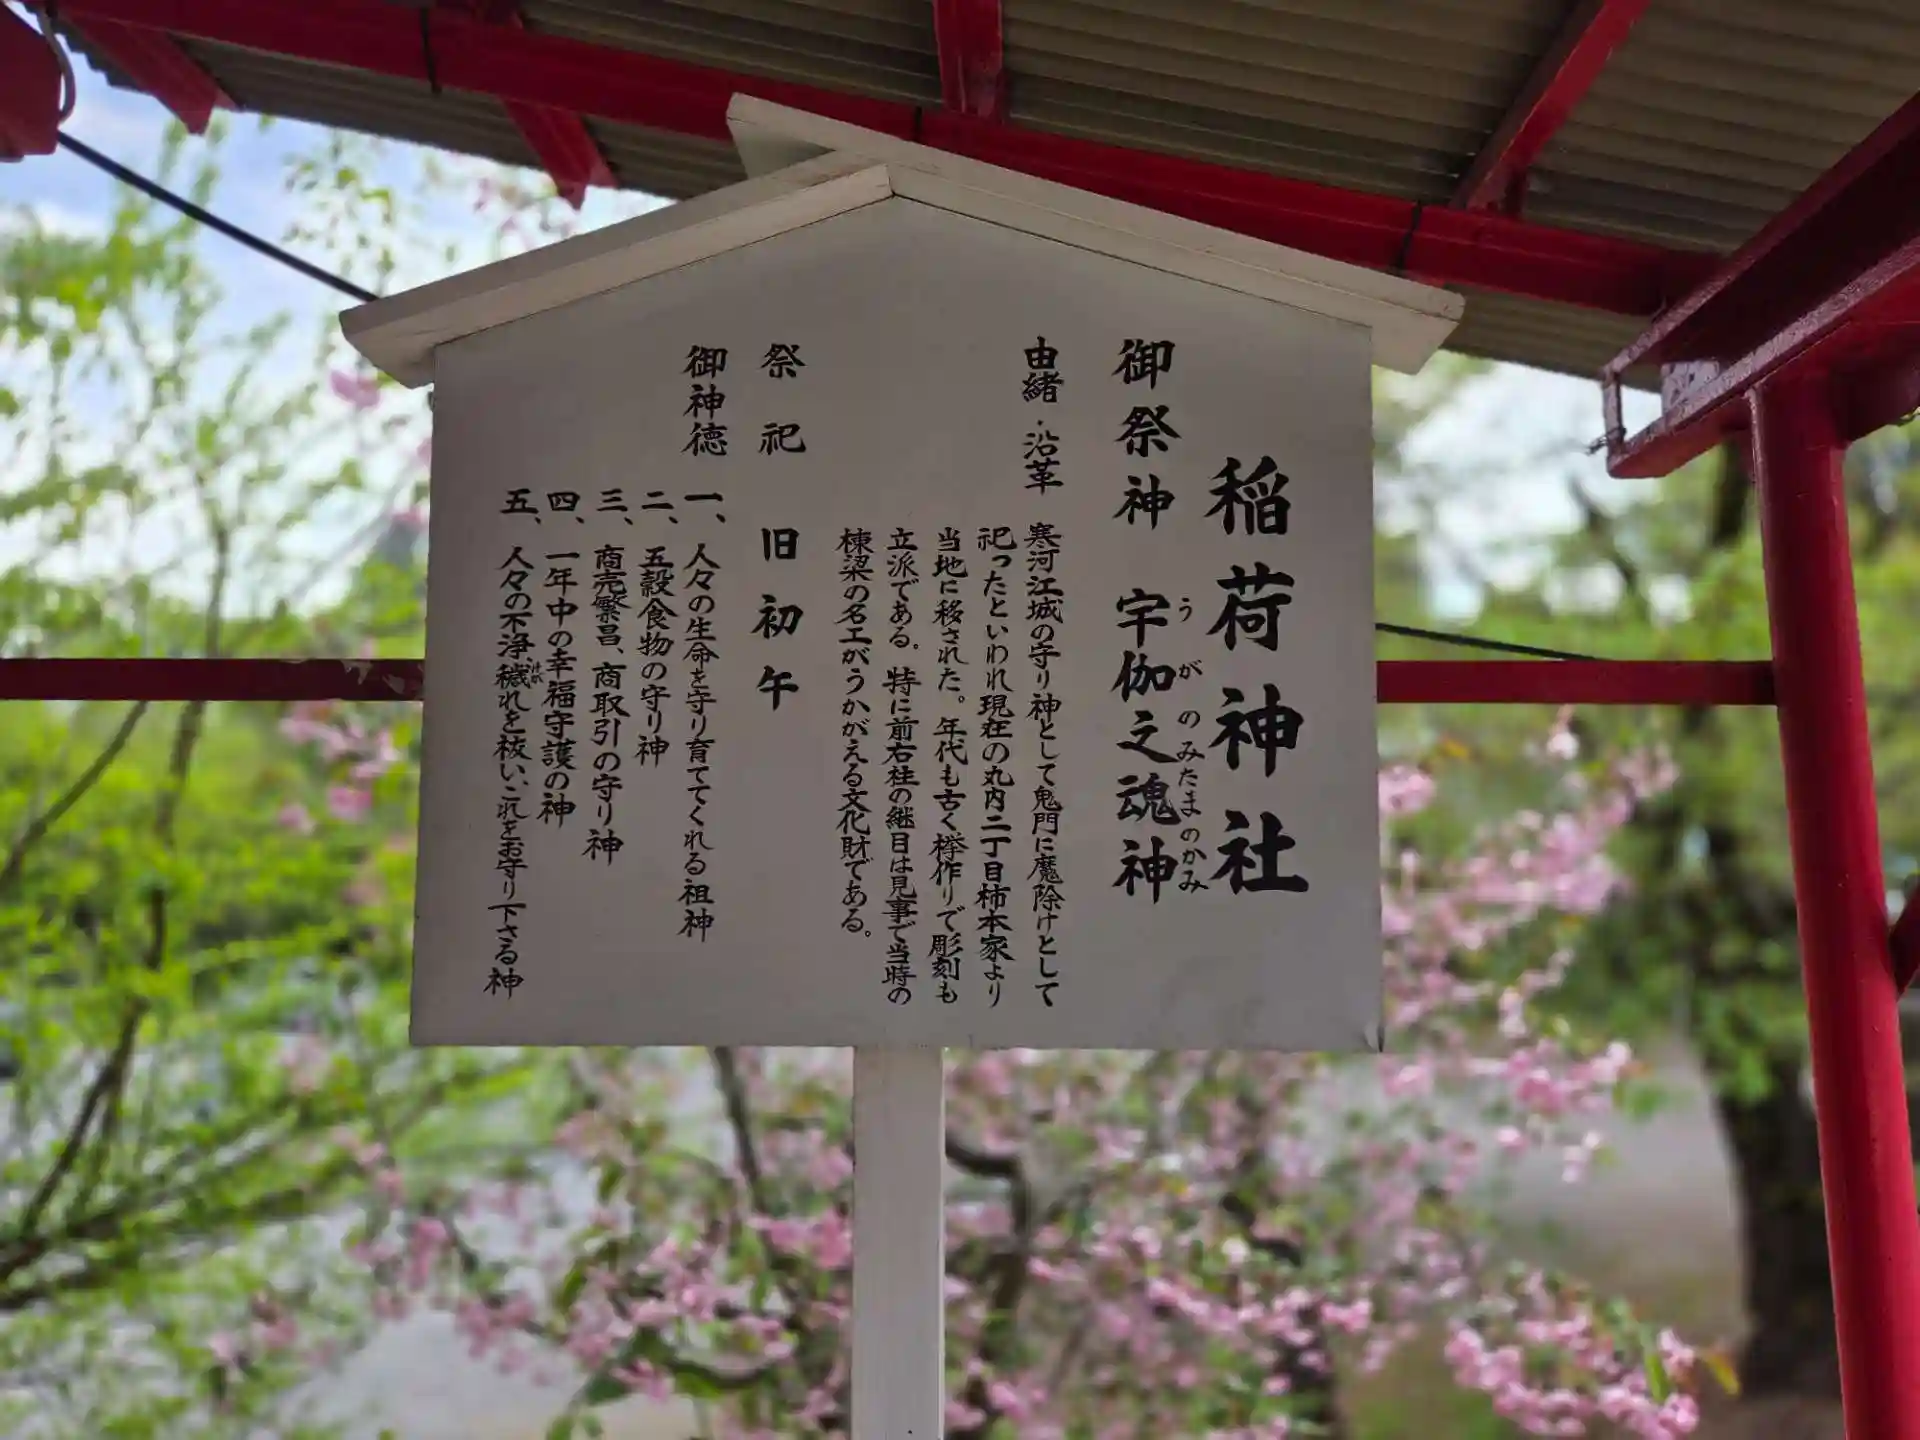 稲荷神社
御祭神 宇伽之魂神
うがのみたまのかみ
由緒・沿革 寒河江城の守り神として鬼門に魔除けとして
祀ったといわれ現在の丸内二丁目柿本家より
当地に移された。年代も古く欅作りで彫刻も
立派である。特に前右柱の継目は見事で当時の
棟梁の名工がうかがえる文化財である。
祭祀 旧初午
御神徳 一、人々の生命を守り育ててくれる祖神
二、五穀食物の守り神
三、商売繁昌、商取引の守り神
四、一年中の幸福守護の神
五、人々の不浄、穢れを祓い、これをお守り下さる神
けが